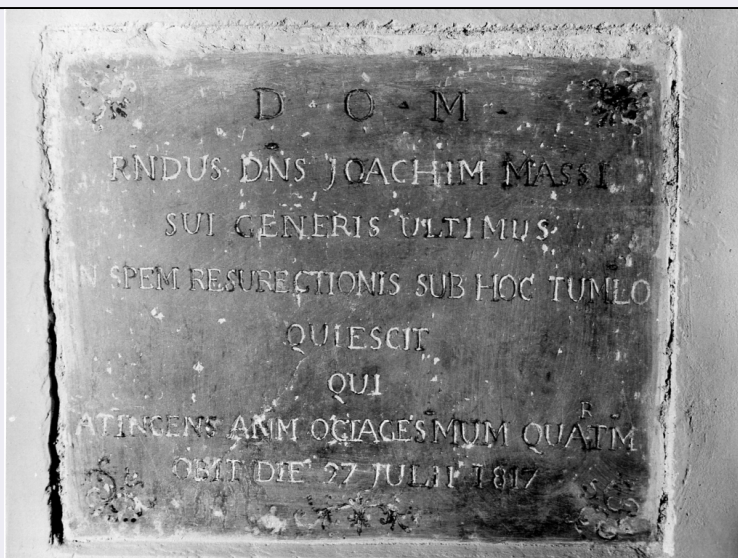 D · O · M ·
RNDUS DNS JOACHIM MASSI
SUI GENERIS ULTIMUS
IN SPEM RESURECTIONIS SUB HOC TUMLO
QUIESCIT
QUI
ATINGENS ANM OCTAGESMUM QUATRM
OBIT DIE 27 JULII 1817